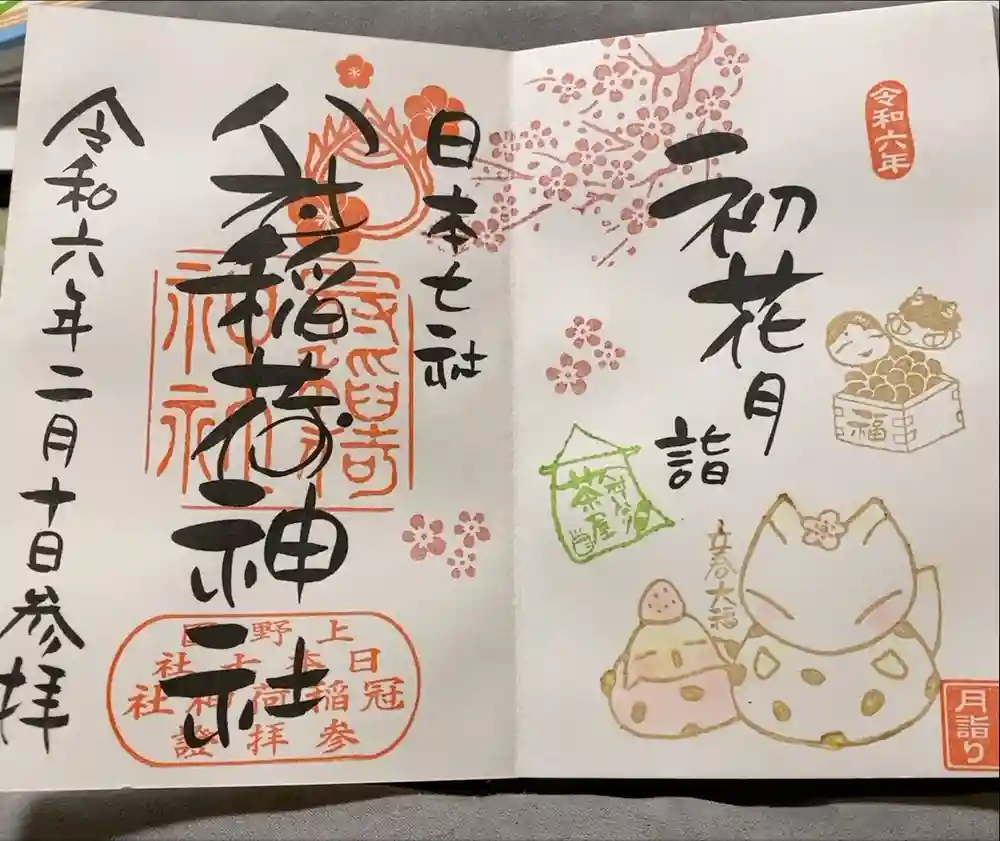 令和六年
初花月
詣
福
茶屋
立春大福
月詣り
日本七社
冠稲荷神社
上野国
日本七社
冠稲荷神社
参拝證
令和六年二月十日参拝